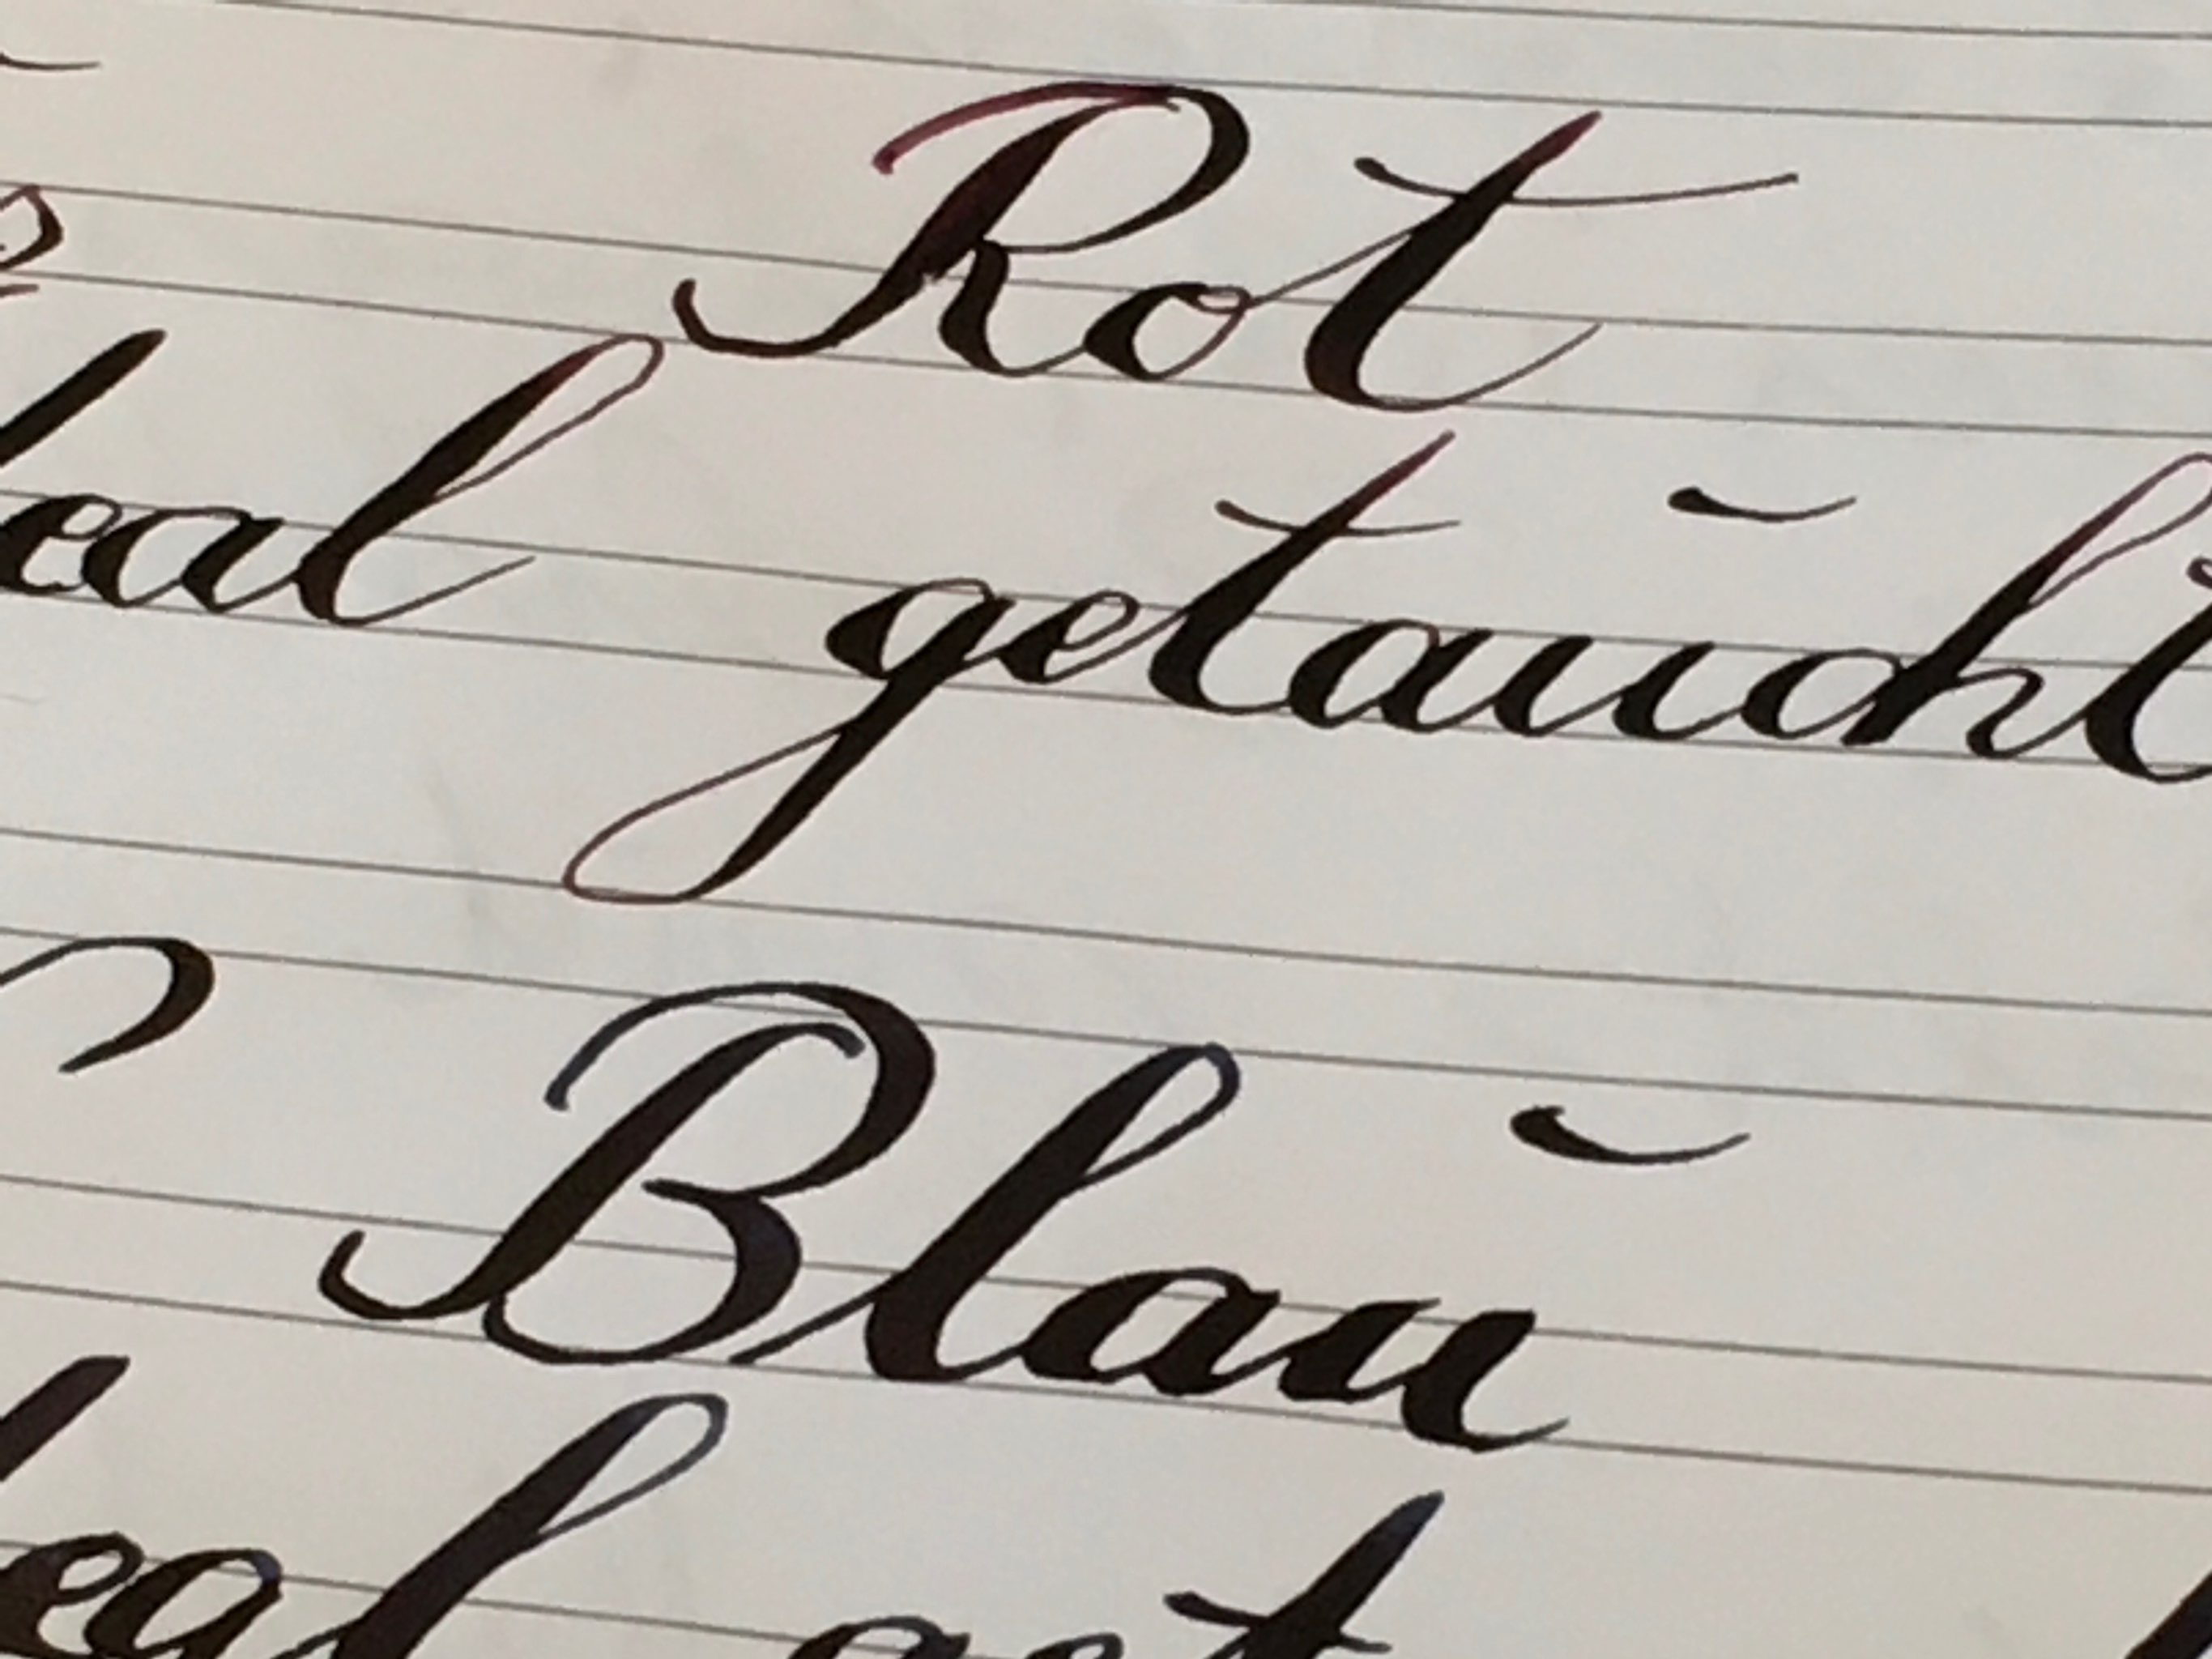 Rot
eal getaucht
Blau
eal get